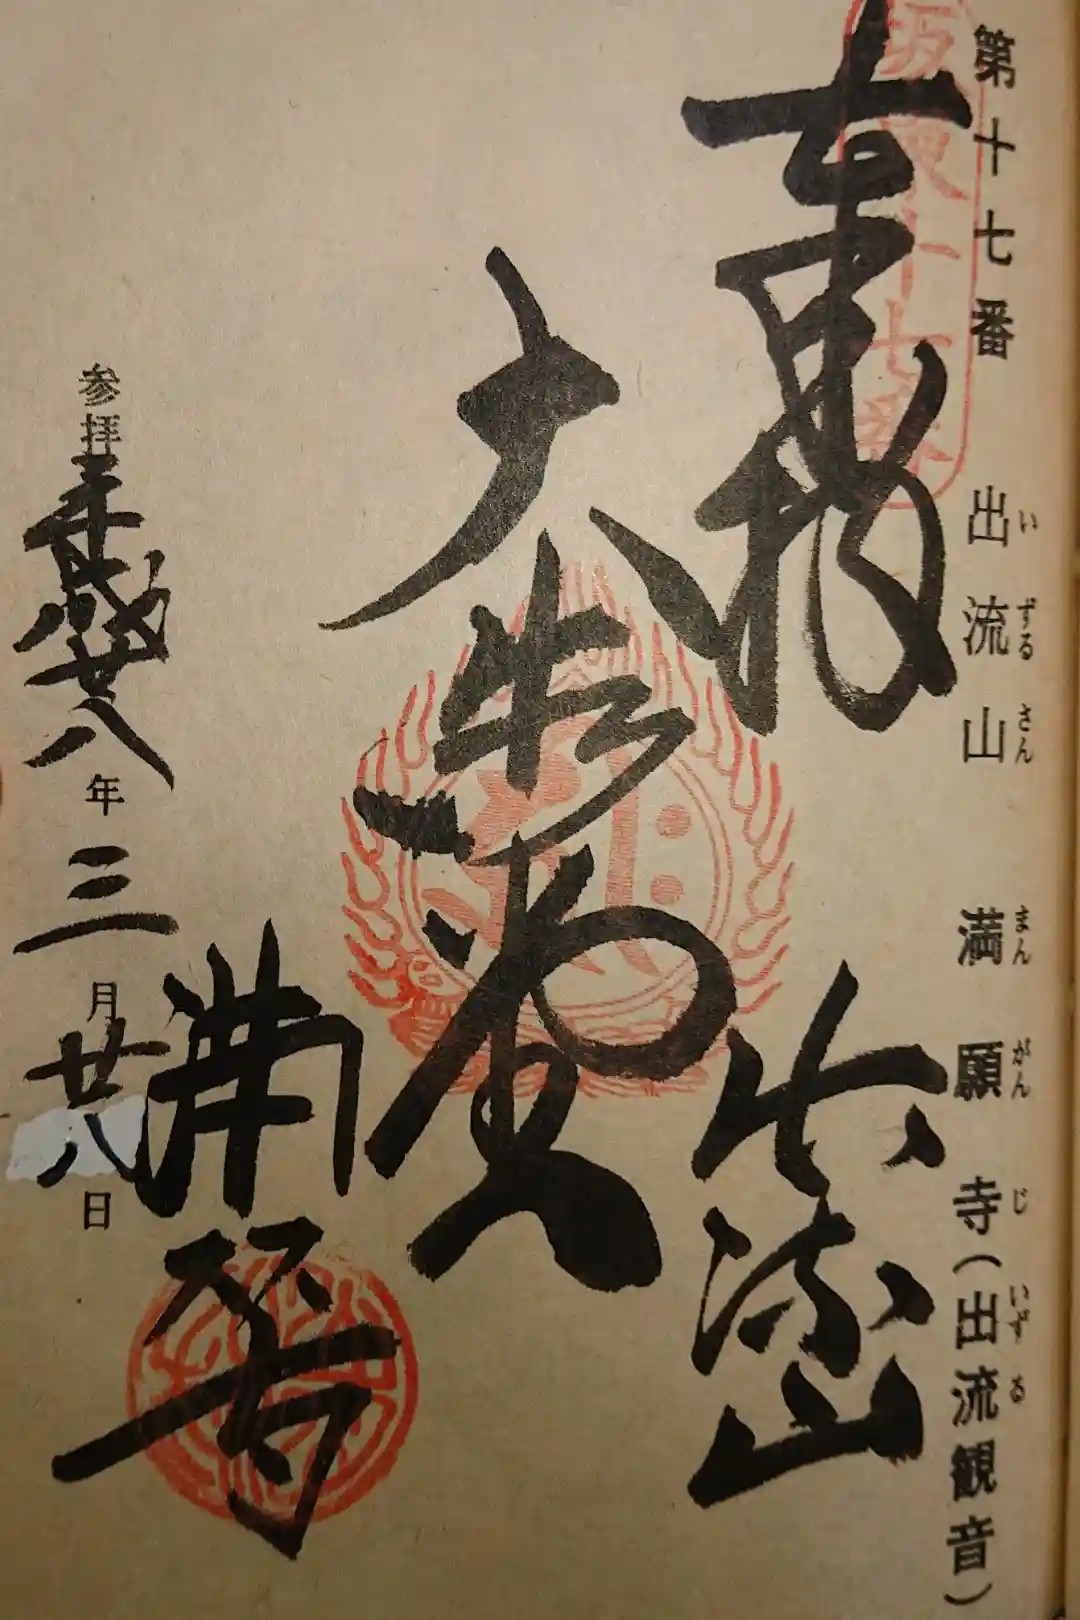 第十七番 出流山 満願寺(出流観音)
いずるさん まんがんじ いずる
坂東十七番
奉拝 出流山
大悲殿
満願寺
参拝平成廿八年三月廿八日